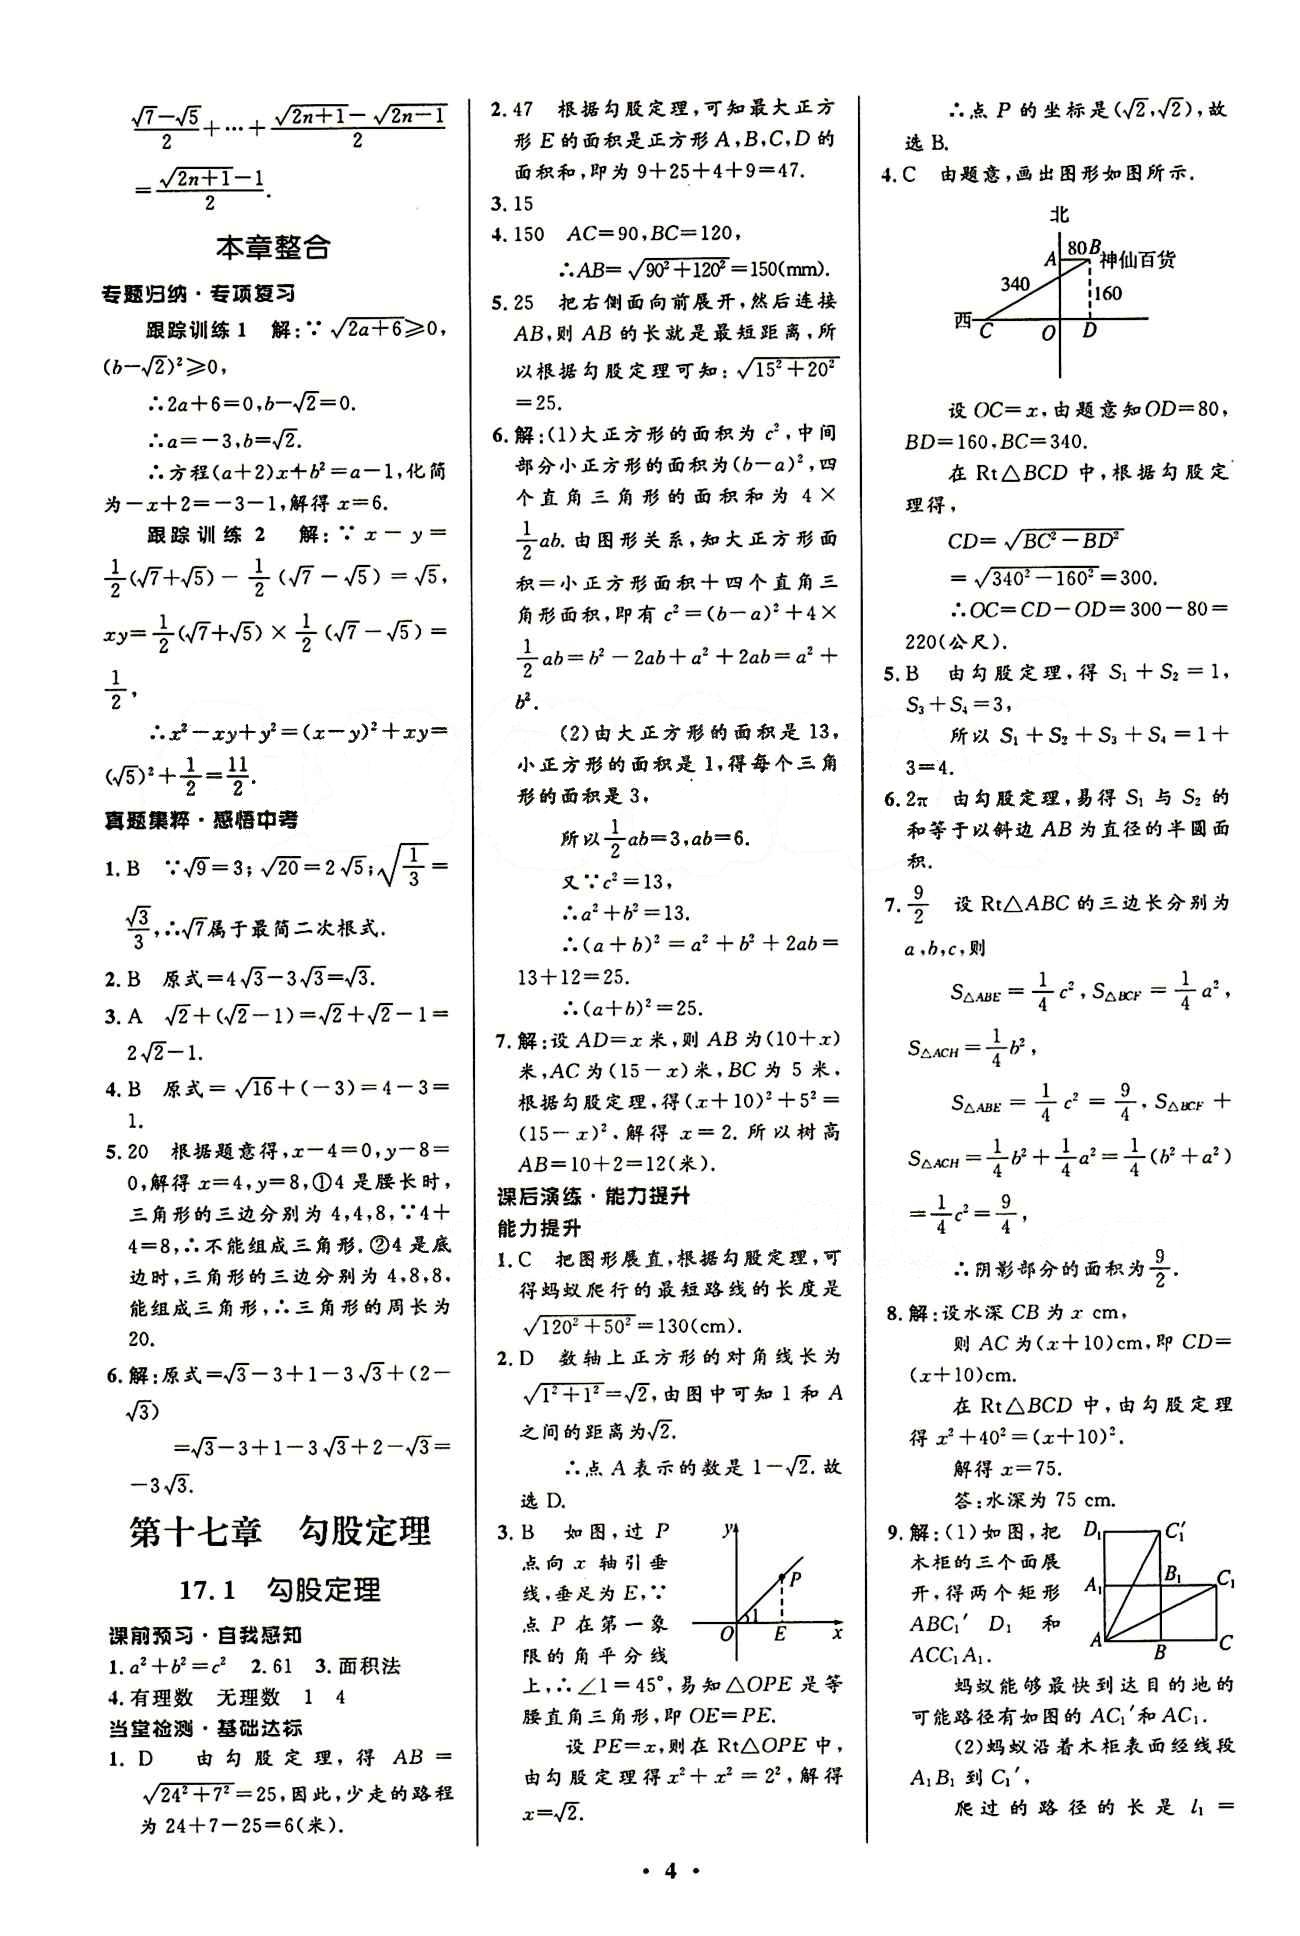 (√7−√5)/2+…+(√(2n+1)−√(2n−1))/2
=(√(2n+1)−1)/2.
本章整合
专题归纳·专项复习
跟踪训练1　解:∵√(2a+6)≥0,
(b−√2)²≥0,
∴2a+6=0,b−√2=0.
∴a=−3,b=√2.
∴方程(a+2)x+b²=a−1,化简
为−x+2=−3−1,解得x=6.
跟踪训练2　解:∵x−y=
1/2(√7+√5)−1/2(√7−√5)=√5,
xy=1/2(√7+√5)×1/2(√7−√5)=
1/2,
∴x²−xy+y²=(x−y)²+xy=
(√5)²+1/2=11/2.
真题集粹·感悟中考
1.B　∵√9=3;√20=2√5;√(1/3)=
√3/3,∴√7属于最简二次根式.
2.B　原式=4√3−3√3=√3.
3.A　√2+(√2−1)=√2+√2−1=
2√2−1.
4.B　原式=√16+(−3)=4−3=
1.
5.20　根据题意得,x−4=0,y−8=
0,解得x=4,y=8,①4是腰长时,
三角形的三边分别为4,4,8,∵4+
4=8,∴不能组成三角形.②4是底
边时,三角形的三边分别为4,8,8,
能组成三角形,∴三角形的周长为
20.
6.解:原式=√3−3+1−3√3+(2−
√3)
=√3−3+1−3√3+2−√3=
−3√3.
第十七章　勾股定理
17.1　勾股定理
课前预习·自我感知
1.a²+b²=c²　2.61　3.面积法
4.有理数　无理数　1　4
当堂检测·基础达标
1.D　由勾股定理,得AB=
√(24²+7²)=25,因此,少走的路程
为24+7−25=6(米).
2.47　根据勾股定理,可知最大正方
形E的面积是正方形A,B,C,D的
面积和,即为9+25+4+9=47.
3.15
4.150　AC=90,BC=120,
∴AB=√(90²+120²)=150(mm).
5.25　把右侧面向前展开,然后连接
AB,则AB的长就是最短距离,所
以根据勾股定理可知:√(15²+20²)
=25.
6.解:(1)大正方形的面积为c²,中间
部分小正方形的面积为(b−a)²,四
个直角三角形的面积和为4×
1/2ab.由图形关系,知大正方形面
积=小正方形面积+四个直角三
角形面积,即有c²=(b−a)²+4×
1/2ab=b²−2ab+a²+2ab=a²+
b².
(2)由大正方形的面积是13,
小正方形的面积是1,得每个三角
形的面积是3,
所以1/2ab=3,ab=6.
又∵c²=13,
∴a²+b²=13.
∴(a+b)²=a²+b²+2ab=
13+12=25.
∴(a+b)²=25.
7.解:设AD=x米,则AB为(10+x)
米,AC为(15−x)米,BC为5米.
根据勾股定理,得(x+10)²+5²=
(15−x)².解得x=2.所以树高
AB=10+2=12(米).
课后演练·能力提升
能力提升
1.C　把图形展直,根据勾股定理,可
得蚂蚁爬行的最短路线的长度是
√(120²+50²)=130(cm).
2.D　数轴上正方形的对角线长为
√(1²+1²)=√2,由图中可知1和A
之间的距离为√2.
∴点A表示的数是1−√2.故
选D.
3.B　如图,过P
点向x轴引垂
线,垂足为E,∵
点P在第一象
限的角平分线
上,∴∠1=45°,易知△OPE是等
腰直角三角形,即OE=PE.
y
P
1
O
E
x
设PE=x,则在Rt△OPE中,
由勾股定理得x²+x²=2²,解得
x=√2.
∴点P的坐标是(√2,√2),故
选B.
4.C　由题意,画出图形如图所示.
北
A
80
B
神仙百货
340
160
西
C
O
D
设OC=x,由题意知OD=80,
BD=160,BC=340.
在Rt△BCD中,根据勾股定
理得,
CD=√(BC²−BD²)
=√(340²−160²)=300.
∴OC=CD−OD=300−80=
220(公尺).
5.B　由勾股定理,得S₁+S₂=1,
S₃+S₄=3,
所以S₁+S₂+S₃+S₄=1+
3=4.
6.2π　由勾股定理,易得S₁与S₂的
和等于以斜边AB为直径的半圆面
积.
7.9/2　设Rt△ABC的三边长分别为
a,b,c,则
S△ABE=1/4c²,S△BCF=1/4a²,
S△ACH=1/4b²,
S△ABE=1/4c²=9/4,S△BCF+
S△ACH=1/4b²+1/4a²=1/4(b²+a²)
=1/4c²=9/4,
∴阴影部分的面积为9/2.
8.解:设水深CB为x cm,
则AC为(x+10)cm,即CD=
(x+10)cm.
在Rt△BCD中,由勾股定理
得x²+40²=(x+10)².
解得x=75.
答:水深为75 cm.
9.解:(1)如图,把
木柜的三个面展
开,得两个矩形
ABC₁′D₁和
ACC₁A₁.
D₁
C₁′
A₁
B₁
C₁
A
B
C
蚂蚁能够最快到达目的地的
可能路径有如图的AC₁′和AC₁.
(2)蚂蚁沿着木柜表面经线段
A₁B₁到C₁′,
爬过的路径的长是l₁=
·4·